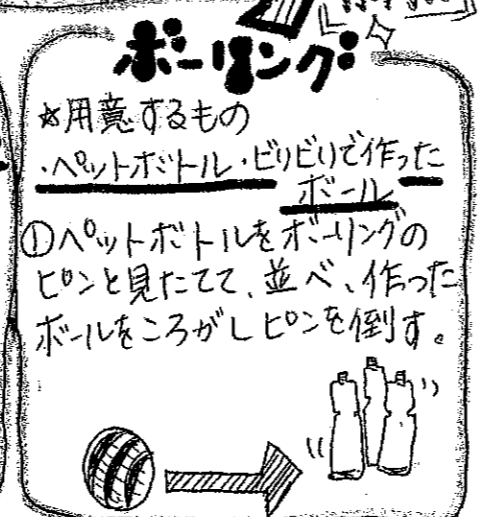 ボーリング
☆用意するもの
・ペットボトル・ビリビリで作った
ボール
①ペットボトルをボーリングの
ピンと見たてて、並べ、作った
ボールをころがしピンを倒す。